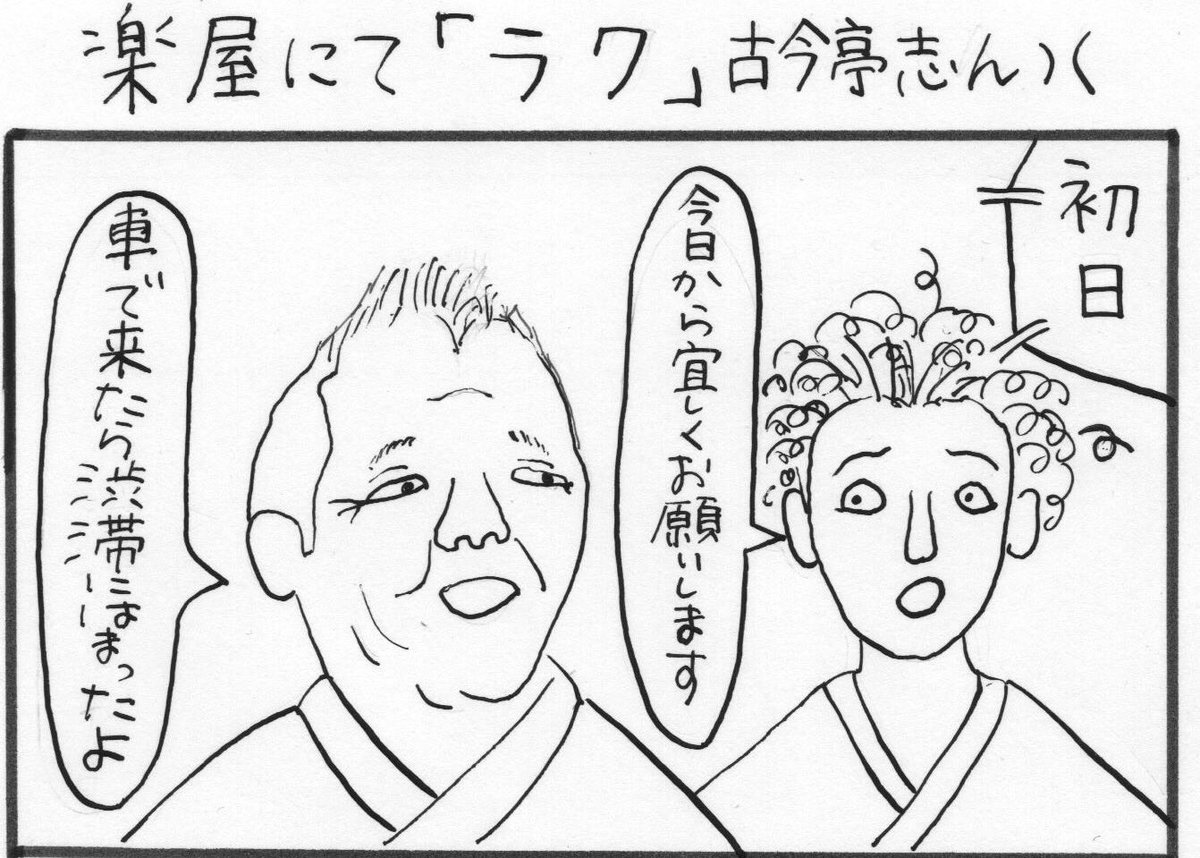 楽屋にて「ラク」古今亭志ん八
初日
今日から宜しくお願いします
車で来たら渋滞にはまったよ